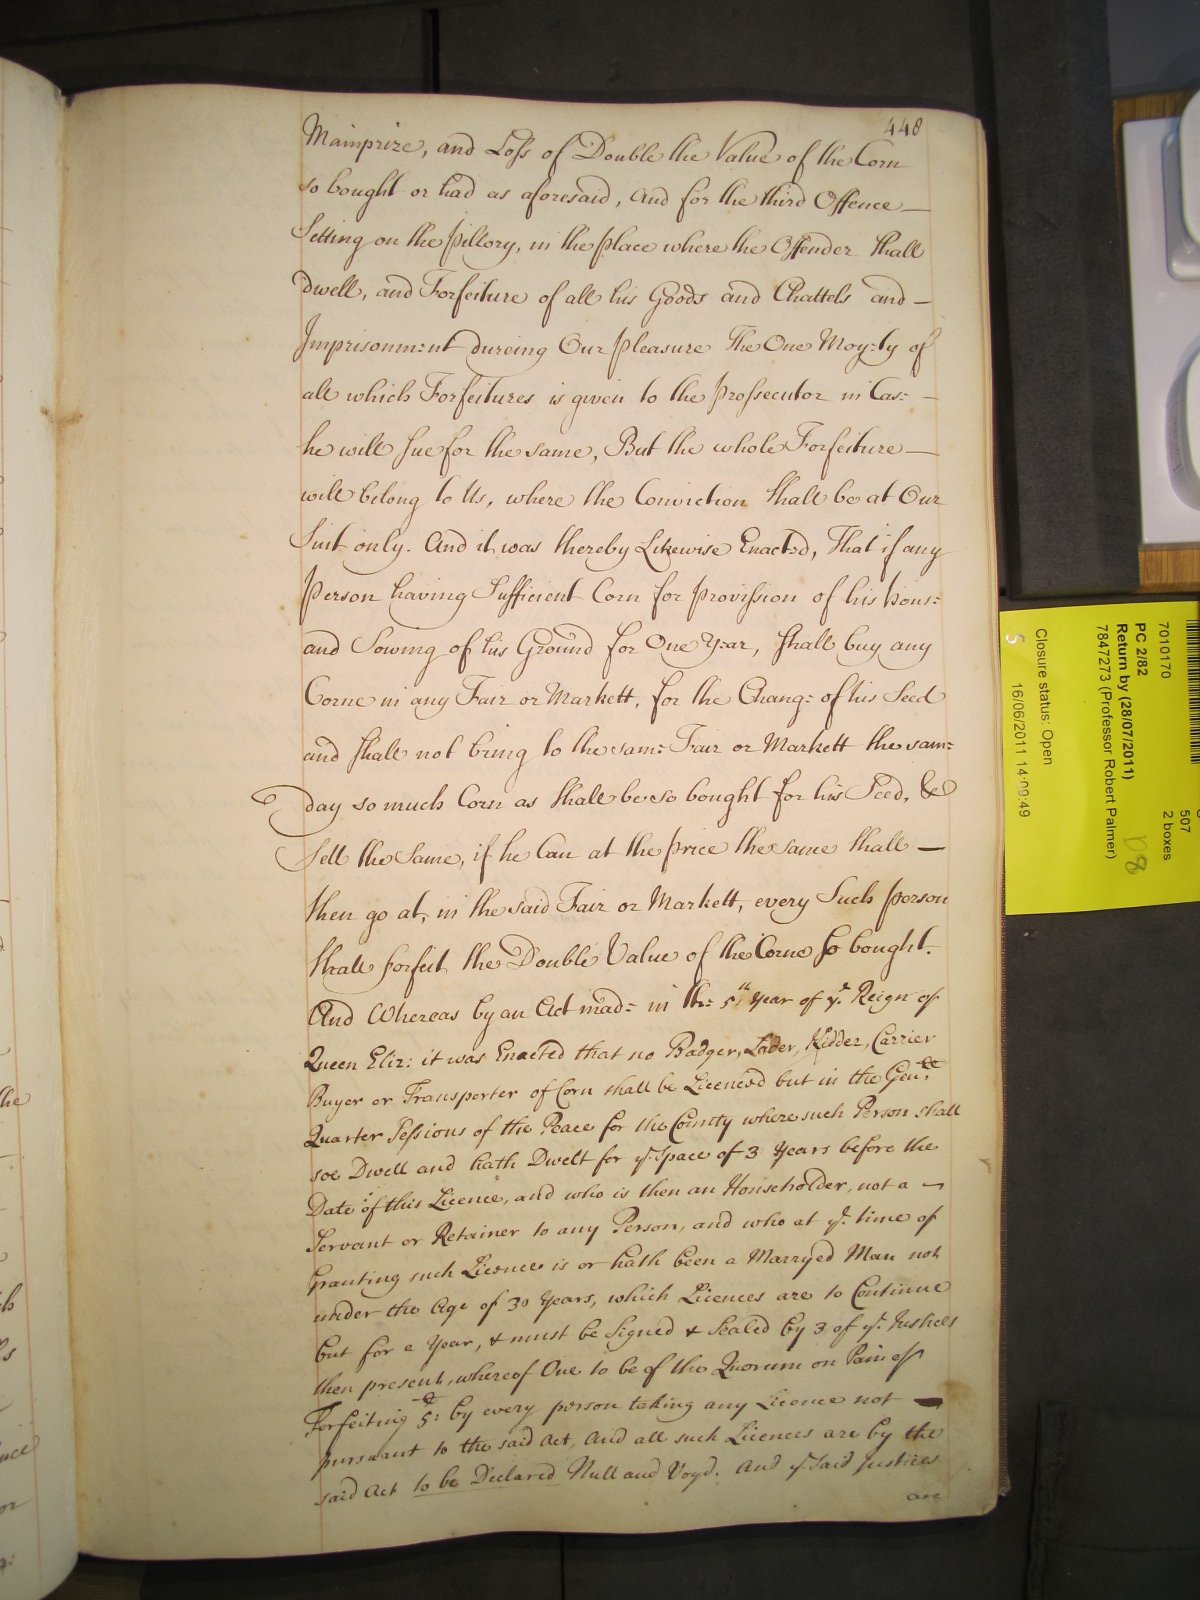 448
Mainprize, and Loss of Double the Value of the Corn
so bought or had as aforesaid, and for the third Offence
Setting on the Pillory, in the place where the Offender shall
dwell, and Forfeiture of all his Goods and Chattels and
Imprisonment dureing Our pleasure The One Moyety of
all which Forfeitures is given to the prossecutor in Case
he will sue for the same, But the whole Forfeiture
will belong to Us, where the Conviction shall be at Our
Suit only. And it was thereby Likewise Enacted, That if any
Person having Sufficient Corn for provission of his house
and Sowing of his Ground for One Year, shall buy any
Corne in any Fair or Markett, for the Change of his Seed
and shall not bring to the same Fair or Markett the same
day so much Corn as shall be so bought for his Seed, &
Sell the Same, if he Can at the price the same shall
then go at, in the said Fair or Markett, every Such person
shall forfeit the Double Value of the Corne so bought.
And Whereas by an Act made in the 5th Year of ye. Reign of
Queen Eliz: it was Enacted that no Badger, Lader, Kidder, Carrier
Buyer or Transporter of Corn shall be Licenced but in the Gen.ll
Quarter Sessions of the Peace for the County where such Person shall
soe Dwell and hath Dwelt for ye. Space of 3 Years before the
Date of this Licence, and who is then an Householder, not a
Servant or Retainer to any Person, and who at ye. time of
Granting such Licence is or hath been a Marryed Man not
under the Age of 30 Years, which Licences are to Continue
but for a Year, & must be Signed & Sealed by 3 of ye. Justices
then present, whereof One to be of the Quorum on Pain of
Forfeiting 5:£ by every person taking any Licence not
pursuant to the said Act, And all such Licences are by the
said Act to be Declared Null and Voyd. And ye Said Justices
are
the
7010170
507
2 boxes
PC 2/82
Return by (28/07/2011)
7847273 (Professor Robert Palmer)
D8
Closure status: Open
S 16/06/2011 14:09:49